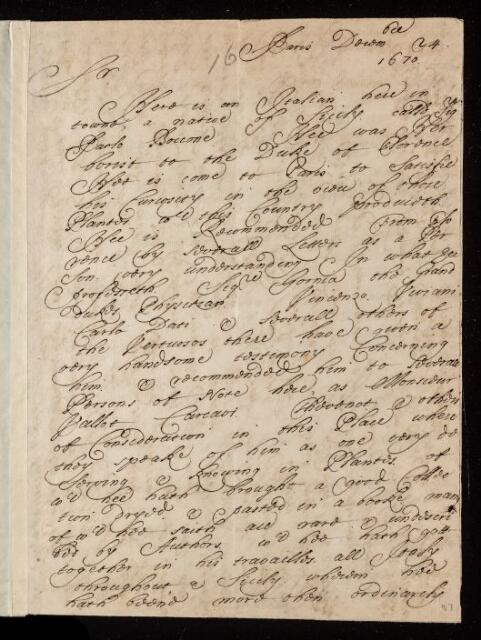 16
Paris Decembre 24.
1670.
Sr
Here is an Italian here in
towne, a native of Sicily call'd Sigr
Paolo Bocone Hee was Her
borist to the Duke of Florence
Hee is come to Paris to satisfie
his Curiosity in the view of those
Plantes wch this Country produceth.
Hee is Recommended from Flo
rence by severall Letters as a Per
son very understanding In what hee
professeth Sigre Gornia the Grand
Dukes Physitian Vincenzo Viviani
Carlo Dati & severall others of
the Vertuosos there have given a
very handsome testemony Concerning
him & recommended him to severall
Persons of Note here, as Monsieur
Jallot Carcavi Thevenot & others
of Consideration in this Place where
they speake of him as one very de
serving & knowing in Plantes of
wch hee hath brought a good Collec
tion dryed & pasted in a booke many
of wch hee saith are rare & undescri
bed by Authors wch hee hath gott
together in his travailles all Italy
throughout & Sicily wherein hee
hath beene more then ordinarily